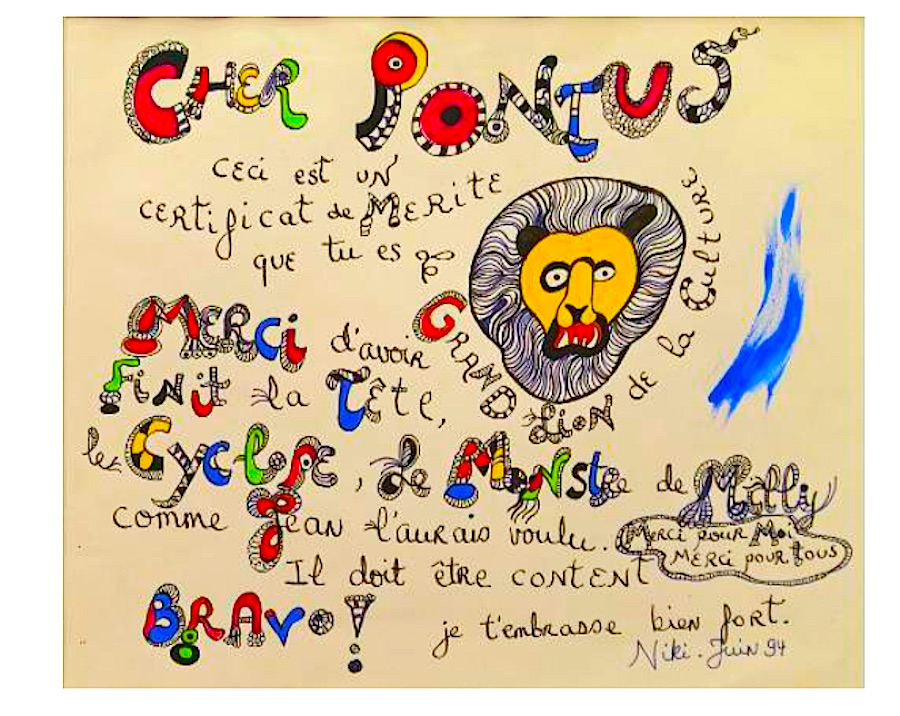 CHER PONTUS
CECi EST UN
CERTificAT de MERITE
que tu es
GRAND LION DE la CULTURE
MERCi d'avoir
FINIT la Tête,
le Cyclope, Le Monstre de Milly
comme Jean l'aurais voulu.
Merci pour Moi
MERCi pour tous
Il doit être CONTENT
BRAVO!
je t'embrasse bien fort.
Niki. Juin 94